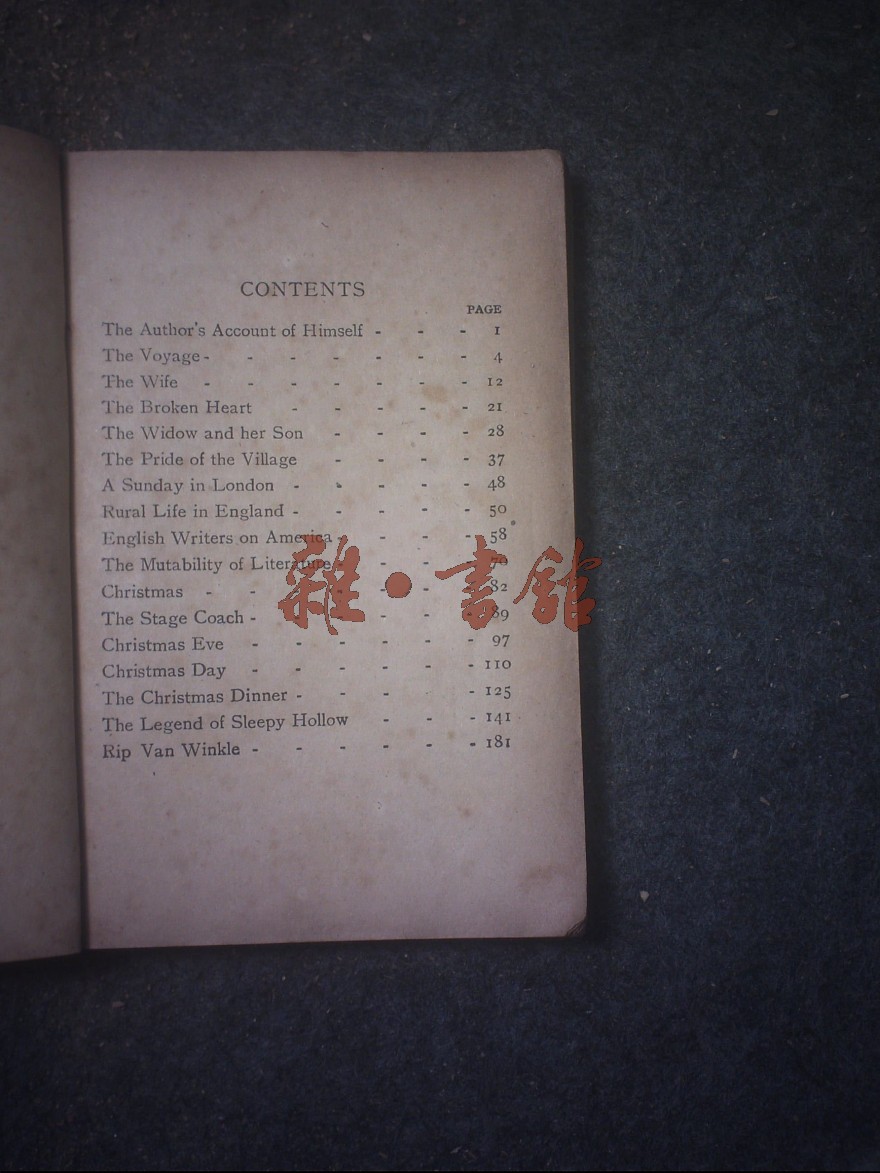 CONTENTS
PAGE
The Author's Account of Himself - - - 1
The Voyage - - - - - - - 4
The Wife - - - - - - - 12
The Broken Heart - - - - - 21
The Widow and her Son - - - - 28
The Pride of the Village - - - - 37
A Sunday in London - - - - - 48
Rural Life in England - - - - - 50
English Writers on America - - - - 58
The Mutability of Literature - - - - 70
Christmas - - - - - - - 82
The Stage Coach - - - - - 89
Christmas Eve - - - - - - 97
Christmas Day - - - - - - 110
The Christmas Dinner - - - - 125
The Legend of Sleepy Hollow - - - 141
Rip Van Winkle - - - - - - 181
雜·書館